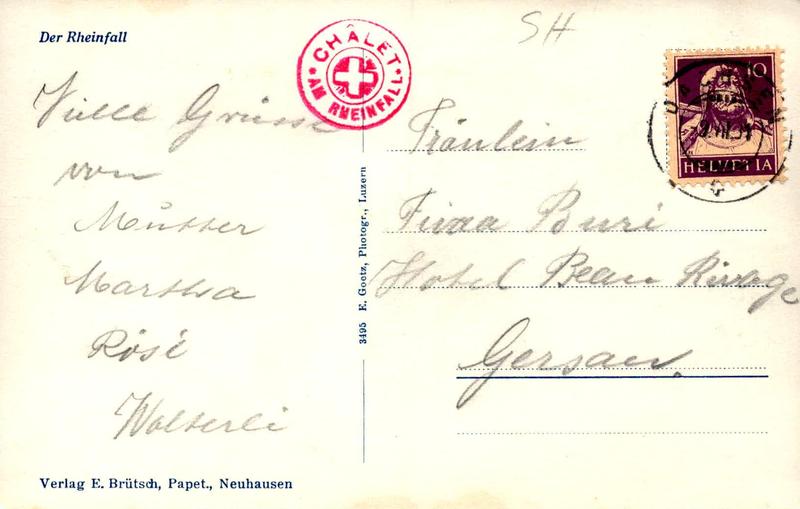 Der Rheinfall
SH
CHÂLET
AM RHEINFALL
10
HELVETIA
Viele Grüsse
von
Mutter
Martha
Rösi
Walterli
Fräulein
Buri
Hotel Beau Rivage
Gersau.
3495 E. Goetz, Photogr., Luzern
Verlag E. Brütsch, Papet., Neuhausen